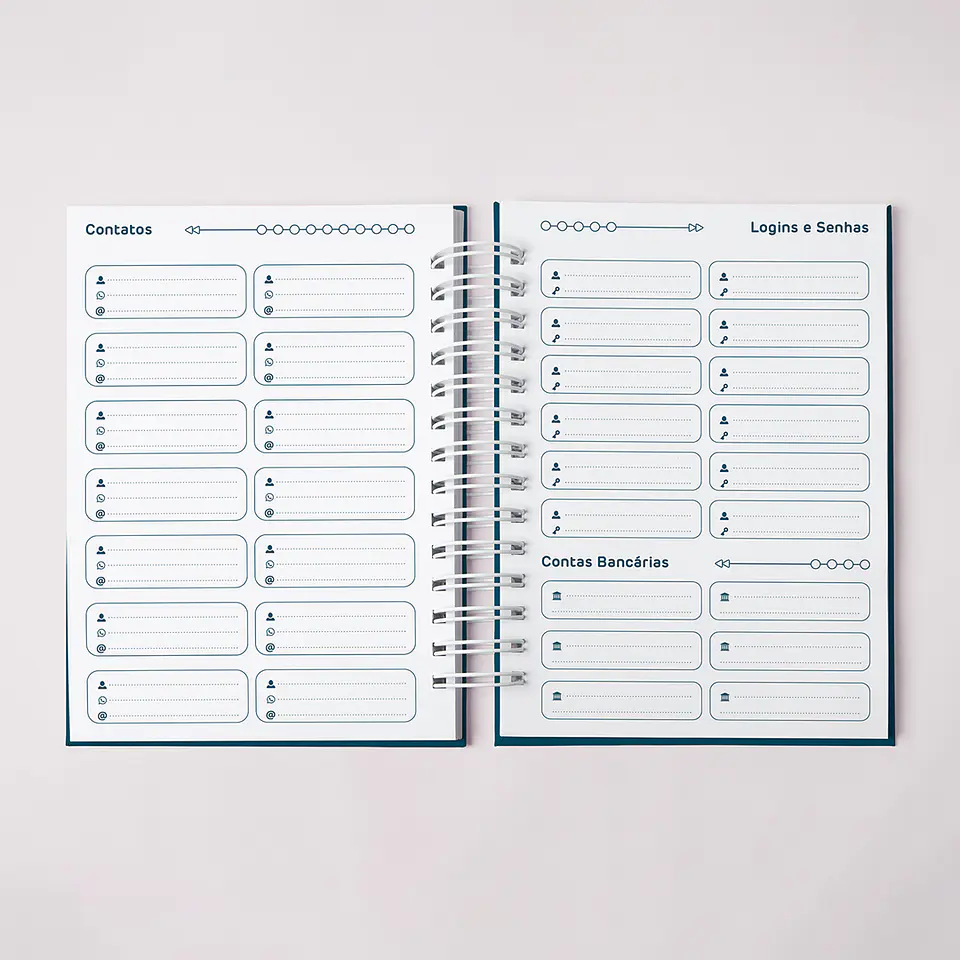 Contatos
@
@
@
@
@
@
@
@
@
@
@
@
@
@
Logins e Senhas
Contas Bancárias